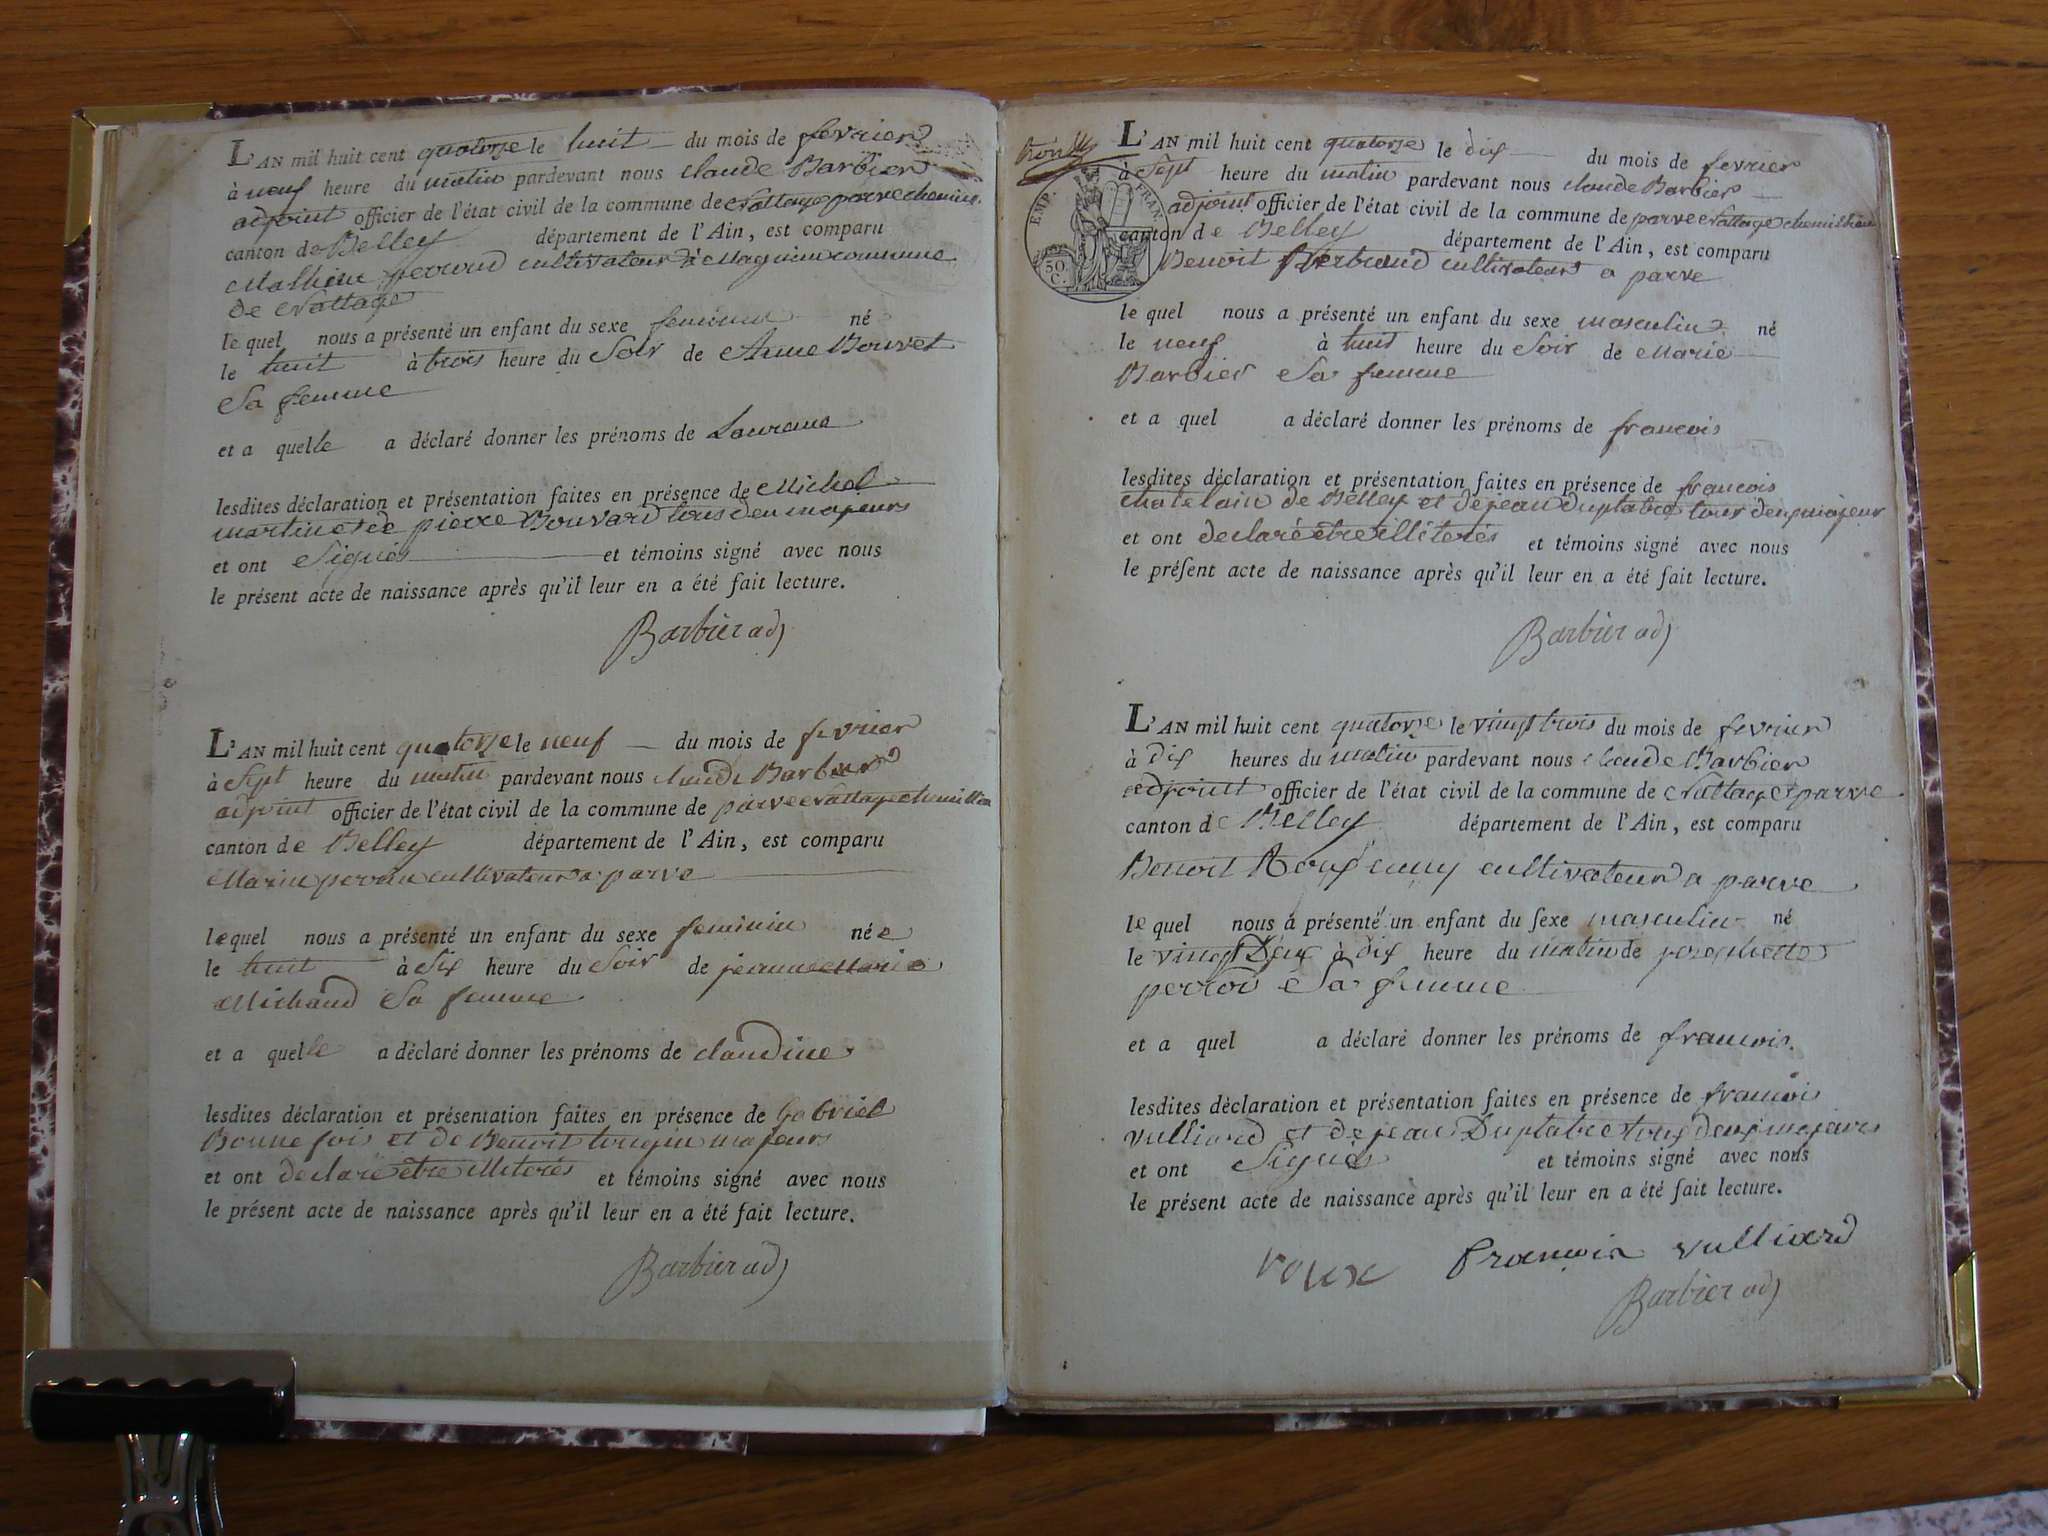 L'AN mil huit cent quatorze le huit du mois de fevrier
à neuf heure du matin pardevant nous claude Barbier
adjoint officier de l'état civil de la commune de Nattage parve
canton de Belley département de l'Ain, est comparu
Mathieu perroud cultivateur à commune
de Nattage
le quel nous a présenté un enfant du sexe feminin né
le huit à trois heure du Soir de Anne Bouvet
Sa femme
et a quelle a déclaré donner les prénoms de
lesdites déclaration et présentation faites en présence de Michel
martin et de pierre Bouvard tous deu majeurs
et ont Signés et témoins signé avec nous
le présent acte de naissance après qu'il leur en a été fait lecture.
Barbier adj
L'AN mil huit cent quatorze le neuf du mois de fevrier
à Sept heure du matin pardevant nous claude Barbier
adjoint officier de l'état civil de la commune de parve Nattage
canton de Belley département de l'Ain, est comparu
Marin cultivateur a parve
lequel nous a présenté un enfant du sexe feminin née
le huit à Six heure du Soir de jeanne Marie
Michaud Sa femme
et a quelle a déclaré donner les prénoms de claudine
lesdites déclaration et présentation faites en présence de Gabriel
Bonnefois et de Benoit majeurs
et ont declaré etre illiterés et témoins signé avec nous
le présent acte de naissance après qu'il leur en a été fait lecture.
Barbier adj
EMP. FRAN.
50.
C.
L'AN mil huit cent quatorze le dix du mois de fevrier
à Sept heure du matin pardevant nous claude Barbier
adjoint officier de l'état civil de la commune de parve Nattage chemillieu
canton de Belley département de l'Ain, est comparu
Benoit cultivateur a parve
le quel nous a présenté un enfant du sexe masculin né
le neuf à huit heure du Soir de Marie
Barbier Sa femme
et a quel a déclaré donner les prénoms de francois
lesdites déclaration et présentation faites en présence de francois
chatelain de Belley et de jean Duplatre tous deux majeur
et ont declaré etre illiterés et témoins signé avec nous
le présent acte de naissance après qu'il leur en a été fait lecture.
Barbier adj
L'AN mil huit cent quatorze le vingt trois du mois de fevrier
à dix heures du matin pardevant nous claude Barbier
adjoint officier de l'état civil de la commune de Nattage parve
canton de Belley département de l'Ain, est comparu
Benoit cultivateur a parve
le quel nous a présenté un enfant du sexe masculin né
le vingt Deux à dix heure du matin de josephette
Sa femme
et a quel a déclaré donner les prénoms de francois.
lesdites déclaration et présentation faites en présence de francois
vulliard et de jean Duplatre tous deux majeurs
et ont Signés et témoins signé avec nous
le présent acte de naissance après qu'il leur en a été fait lecture.
roux François vulliard
Barbier adj